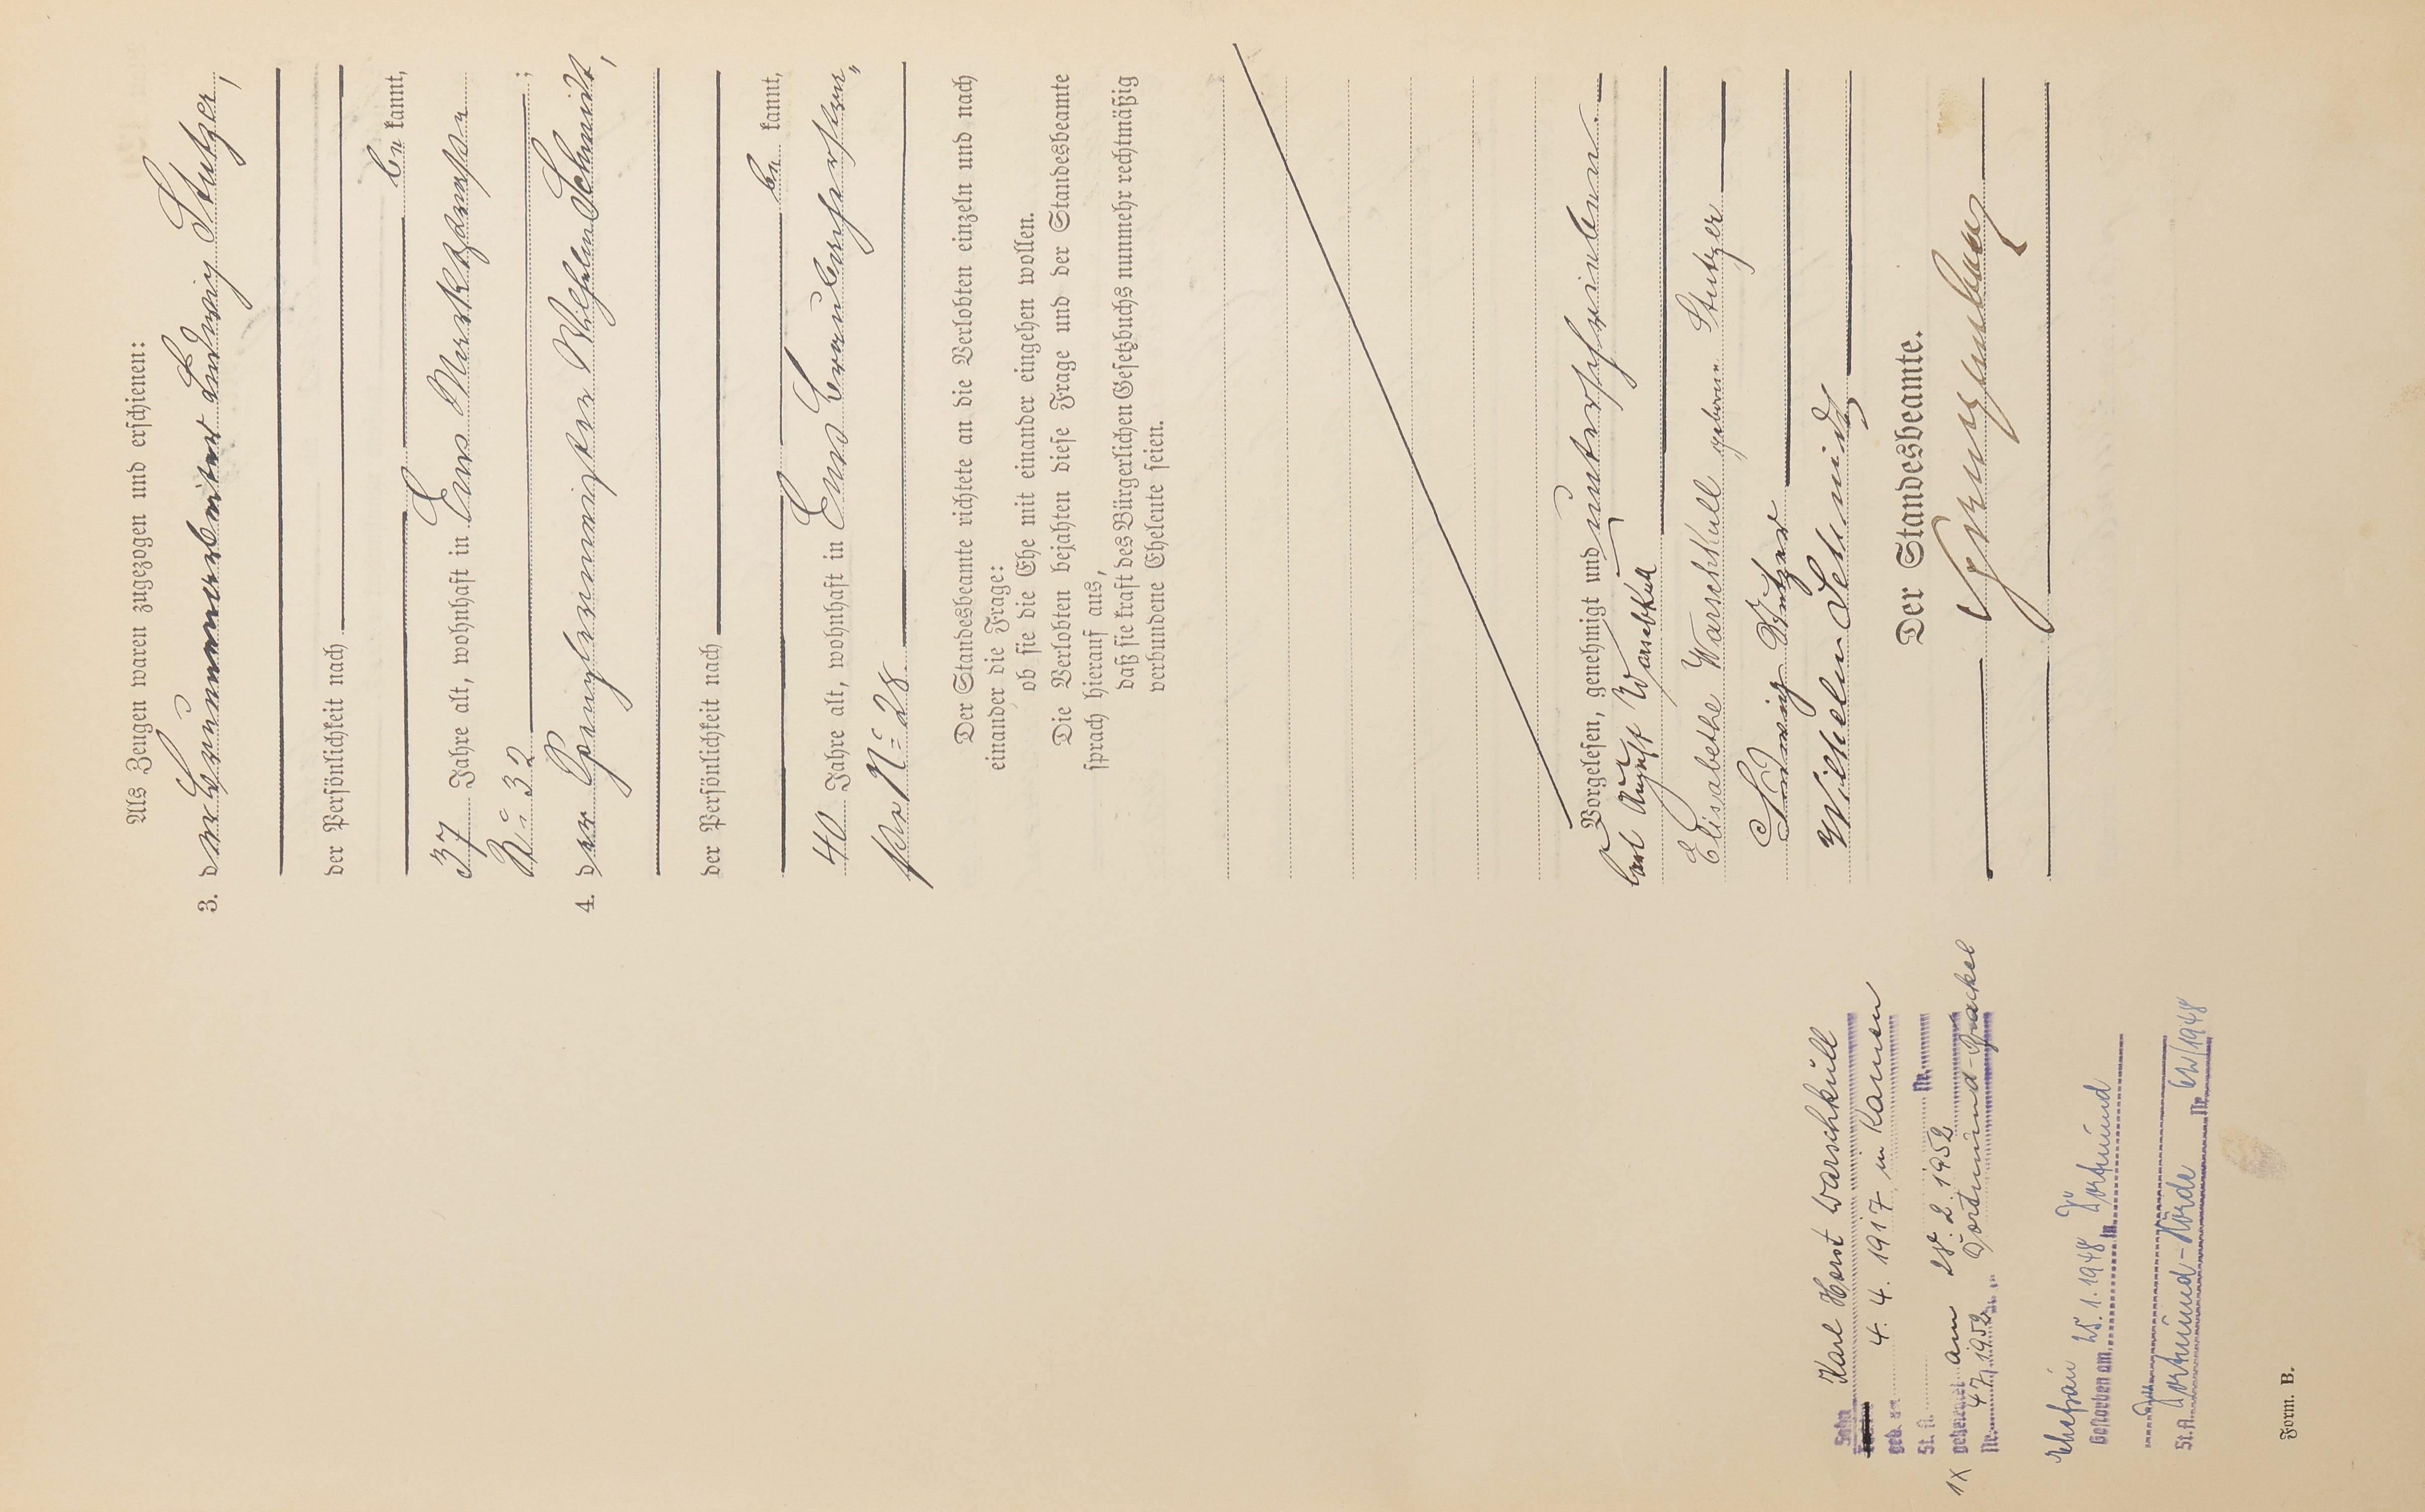 Als Zeugen waren zugezogen und erschienen:
3. der Brunnenarbeiter Ludwig Stutzer,
der Persönlichkeit nach
be kannt,
37 Jahre alt, wohnhaft in Ems Marktstraße
No 32 ;
4. der Wilhelm Schmidt,
der Persönlichkeit nach
be kannt,
40 Jahre alt, wohnhaft in Ems
No 28.
Der Standesbeamte richtete an die Verlobten einzeln und nach
einander die Frage:
ob sie die Ehe mit einander eingehen wollen.
Die Verlobten bejahten diese Frage und der Standesbeamte
sprach hierauf aus,
daß sie kraft des Bürgerlichen Gesetzbuchs nunmehr rechtmäßig
verbundene Eheleute seien.
Vorgelesen, genehmigt und unterschrieben.
Carl August Warschkull
Elisabethe Warschkull geborene Stutzer
Ludwig Stutzer
Wilhelm Schmidt
Der Standesbeamte.
Sohn Karl Horst Warschkull
geb. am 4. 4. 1917 in Kamen
St. A. Nr.
1x geheiratet am 28. 2. 1952
Nr. 47/1952 St. A. Dortmund-Brackel
Ehefrau
Gestorben am 25. 1. 1948 in Dortmund
St. A. Dortmund-Hörde Nr. /1948
Form. B.